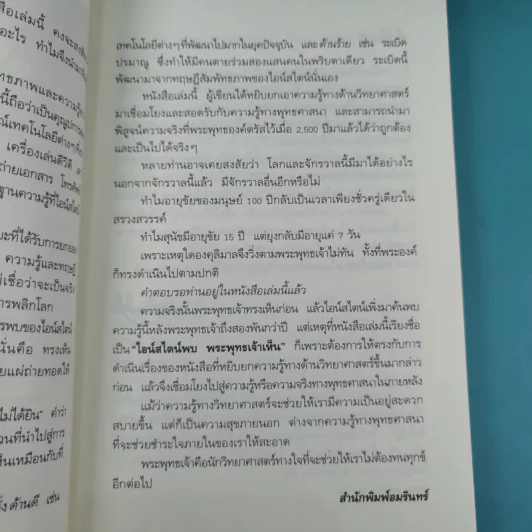 สือเล่มนี้ คงจะสงสัย
อะไร ทำไมจึงนำมา
ทธภาพและความรู้
นี้ถือว่าเป็นคุณูปการ
ณ์เทคโนโลยีต่างๆ
เครื่องเล่นดีวีดี
ถ่ายเอกสาร โทรศัพท์
ฐานความรู้ที่ไอน์สไตน์
ะที่ได้รับการยกย่อง
ความรู้และทฤษฎี
เชื่อว่าจะเป็นจริง
ารพลิกโลก
ารพบของไอน์สไตน์
นั่นคือ ทรงเห็น
ยแผ่ถ่ายทอดให้
ไม่ได้ยิน" คำว่า
วนที่นำไปสู่การ
ห็นเหมือนกับที่
ั้งด้านดี เช่น
เทคโนโลยีต่างๆ ที่พัฒนาไปมากในยุคปัจจุบัน และด้านร้าย เช่น ระเบิด
ปรมาณู ซึ่งทำให้มีคนตายร่วมสองแสนคนในพริบตาเดียว ระเบิดนี้
พัฒนามาจากทฤษฎีสัมพัทธภาพของไอน์สไตน์นั่นเอง
หนังสือเล่มนี้ ผู้เขียนได้หยิบยกเอาความรู้ทางด้านวิทยาศาสตร์
มาเชื่อมโยงและสอดรับกับความรู้ทางพุทธศาสนา และสามารถนำมา
พิสูจน์ความจริงที่พระพุทธองค์ตรัสไว้เมื่อ 2,500 ปีมาแล้วได้ว่าถูกต้อง
และเป็นไปได้จริงๆ
หลายท่านอาจเคยสงสัยว่า โลกและจักรวาลนี้มีมาได้อย่างไร
นอกจากจักรวาลนี้แล้ว มีจักรวาลอื่นอีกหรือไม่
ทำไมอายุขัยของมนุษย์ 100 ปีกลับเป็นเวลาเพียงชั่วครู่เดียวใน
สรวงสวรรค์
ทำไมสุนัขมีอายุขัย 15 ปี แต่ยุงกลับมีอายุแค่ 7 วัน
เพราะเหตุใดองคุลิมาลจึงวิ่งตามพระพุทธเจ้าไม่ทัน ทั้งที่พระองค์
ก็ทรงดำเนินไปตามปกติ
คำตอบรอท่านอยู่ในหนังสือเล่มนี้แล้ว
ความจริงนั้นพระพุทธเจ้าทรงเห็นก่อน แล้วไอน์สไตน์เพิ่งมาค้นพบ
ความรู้นี้หลังพระพุทธเจ้าถึงสองพันกว่าปี แต่เหตุที่หนังสือเล่มนี้เรียงชื่อ
เป็น "ไอน์สไตน์พบ พระพุทธเจ้าเห็น" ก็เพราะต้องการให้ตรงกับการ
ดำเนินเรื่องของหนังสือที่หยิบยกความรู้ทางด้านวิทยาศาสตร์ขึ้นมากล่าว
ก่อน แล้วจึงเชื่อมโยงไปสู่ความรู้หรือความจริงทางพุทธศาสนาในภายหลัง
แม้ว่าความรู้ทางวิทยาศาสตร์จะช่วยให้เรามีความเป็นอยู่สะดวก
สบายขึ้น แต่ก็เป็นความสุขภายนอก ต่างจากความรู้ทางพุทธศาสนา
ที่จะช่วยชำระใจภายในของเราให้สะอาด
พระพุทธเจ้าคือนักวิทยาศาสตร์ทางใจที่จะช่วยให้เราไม่ต้องทนทุกข์
อีกต่อไป
สำนักพิมพ์อมรินทร์